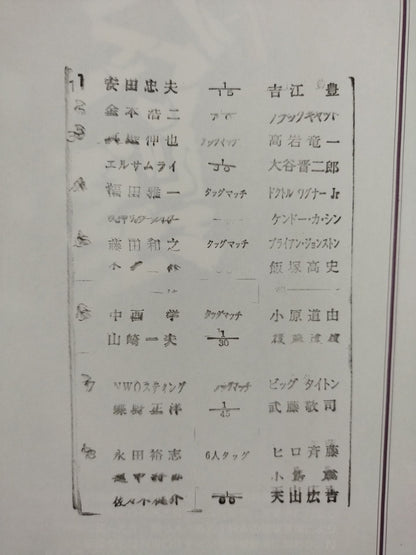 1 安田忠夫 1/15 吉江 豊
金本浩二 ブラックキャット
伸也 タッグマッチ 高岩竜一
エルサムライ 1/30 大谷晋二郎
福田雅一 タッグマッチ ドクトル ワグナー Jr
ケンドー・カ・シン
藤田和之 タッグマッチ ブライアン・ジョンストン
飯塚高史
中西 学 タッグマッチ 小原道由
山崎一夫 1/30 後藤達俊
7 NWOスティング タッグマッチ ビッグ タイトン
蝶野正洋 1/45 武藤敬司
永田裕志 6人タッグ ヒロ斉藤
越中詩郎 小島 聡
佐々木健介 1/60 天山広吉